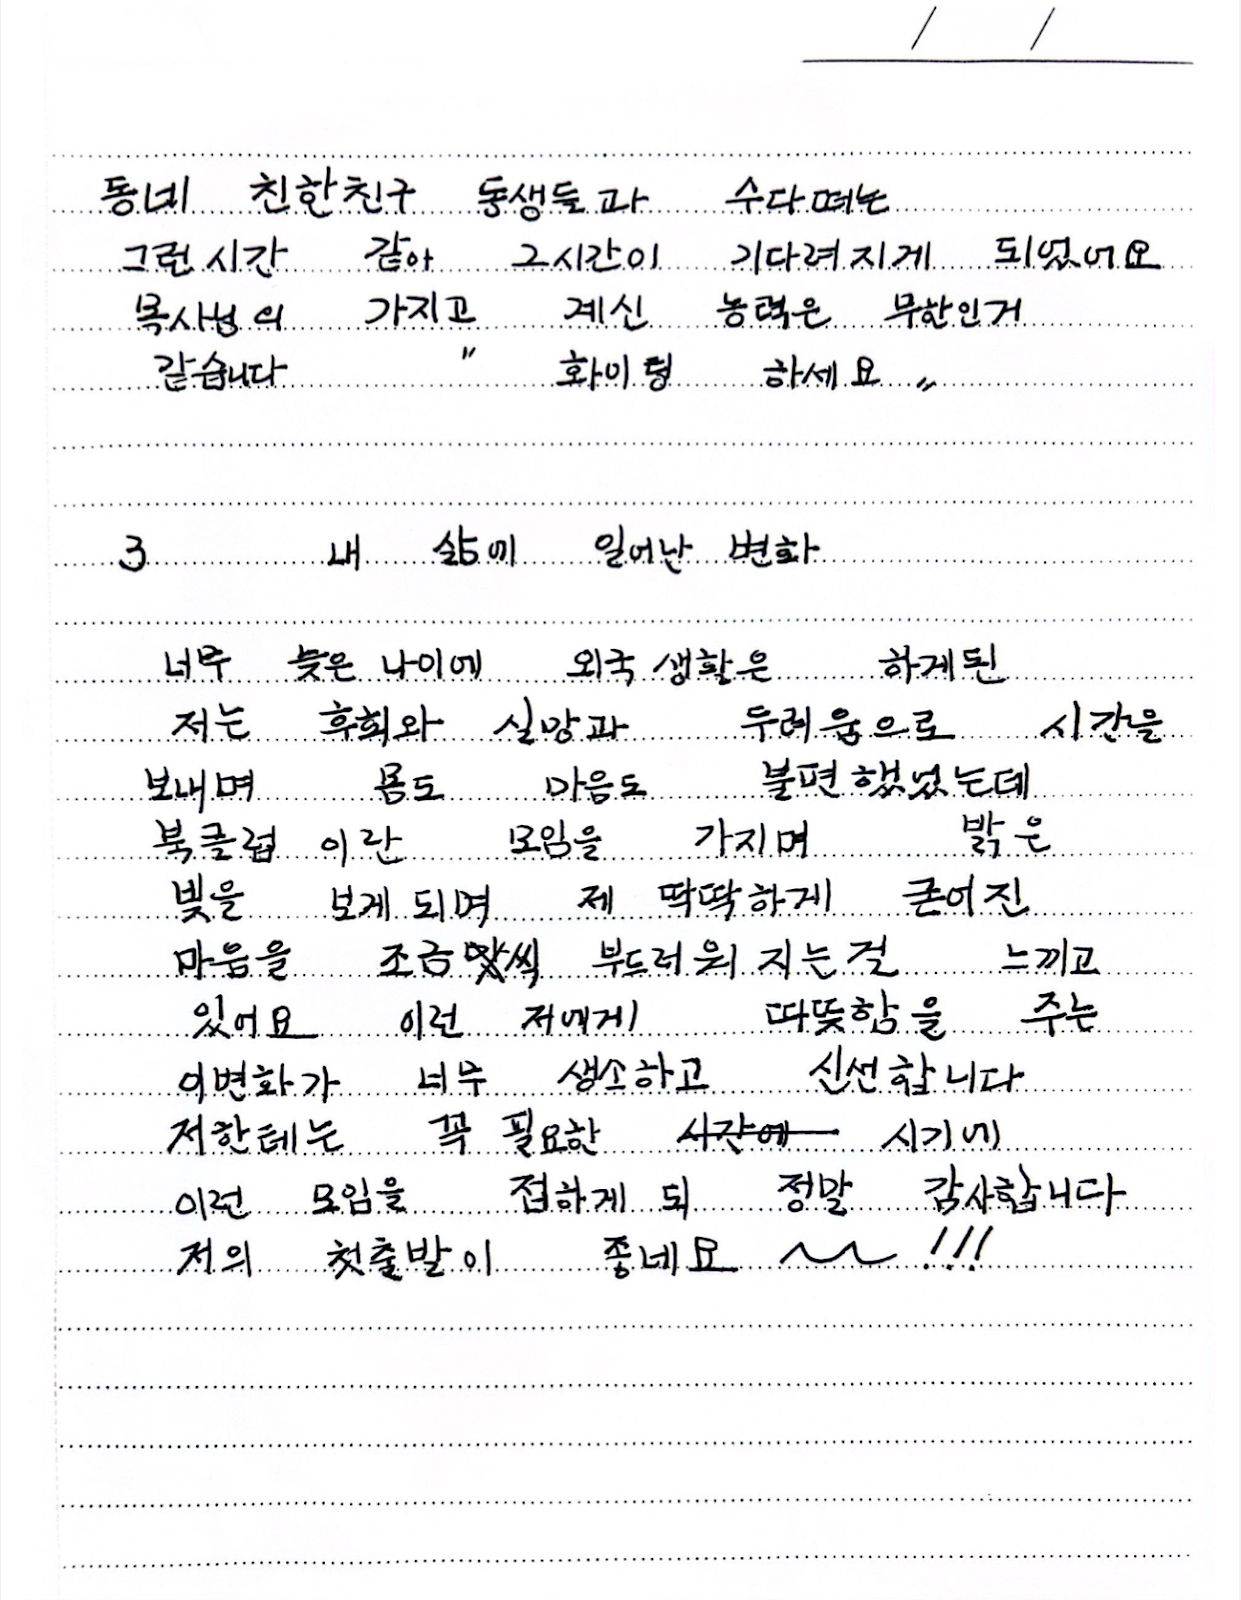 / /
동네 친한친구 동생들과 수다떠는
그런시간 같아 그시간이 기다려지게 되었어요
목사님의 가지고 계신 능력은 무한인거
같습니다 " 화이팅 하세요 "
3 내 삶에 일어난 변화
너무 늦은 나이에 외국생활은 하게된
저는 후회와 실망과 두려움으로 시간을
보내며 몸도 마음도 불편했었는데
북클럽 이란 모임을 가지며 밝은
빛을 보게되며 제 딱딱하게 굳어진
마음을 조금씩 부드러워지는걸 느끼고
있어요 이런 저에게 따뜻함을 주는
이변화가 너무 생소하고 신선합니다
저한테는 꼭 필요한 시간에 시기에
이런 모임을 접하게 되 정말 감사합니다
저의 첫출발이 좋네요 ~~ !!!